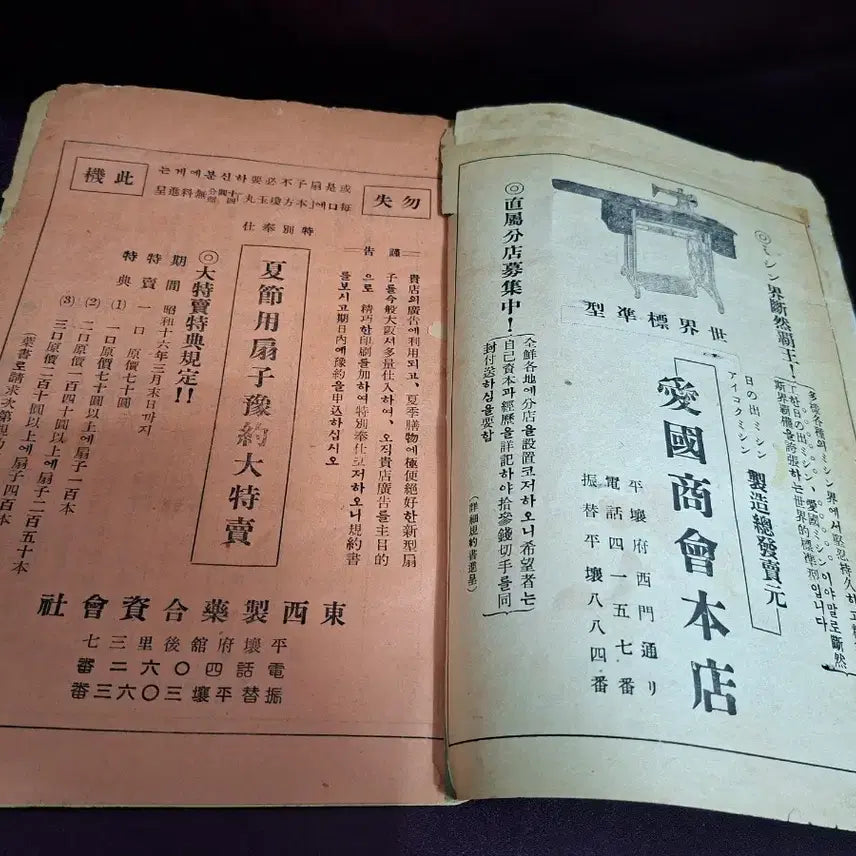 ◎ミシン界斷然覇王!
斯界覇權을誇張하는世界的標準型입니다
世界標準型
日の出ミシン
アイコクミシン
製造總發賣元
愛國商會本店
平壤府西門通り
電話四一五七番
振替平壤八八四番
◎直屬分店募集中!
全鮮各地에分店을設置코저하오니希望者는
自己資本과經歷을詳記하야拾參錢切手를同
封付送하심을要함
(詳細規約書進呈)
勿失
此機
或是扇子不必要하신분에게는
無料進呈
特別奉仕
謹告
貴店의廣告에利用되고、夏季購物에極便絕好한新型扇
子를今般大阪서多量仕入하여、오직貴店廣告를主目的
으로 精巧한印刷를加하여特別奉仕코저하오니規約書
를보시고期日內에豫約을申込하십시오
夏節用扇子豫約大特賣
◎大特賣特典規定!!
期間 昭和十六年三月末日까지
特賣 一口 原價七十圓
特典 (1) 一口原價七十圓以上에扇子一百本
(2) 二口原價一百四十圓以上에扇子二百五十本
(3) 三口原價二百十圓以上에扇子四百本
(葉書로請求次第規約
東西製藥合資會社
平壤府舘後里三七
電話四〇六二番
振替平壤三〇六三番